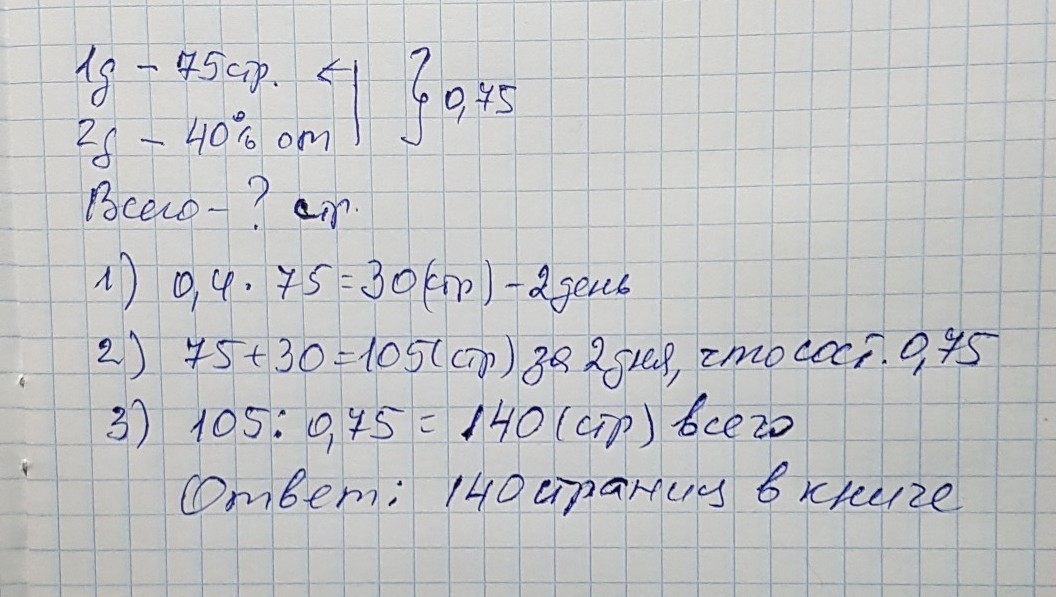 1д - 75 стр.
2д - 40% от } 0,75
Всего - ? стр.
1) 0,4 · 75 = 30 (стр) - 2 день
2) 75 + 30 = 105 (стр) за 2 дня, что сост. 0,75
3) 105 : 0,75 = 140 (стр) всего
Ответ: 140 страниц в книге